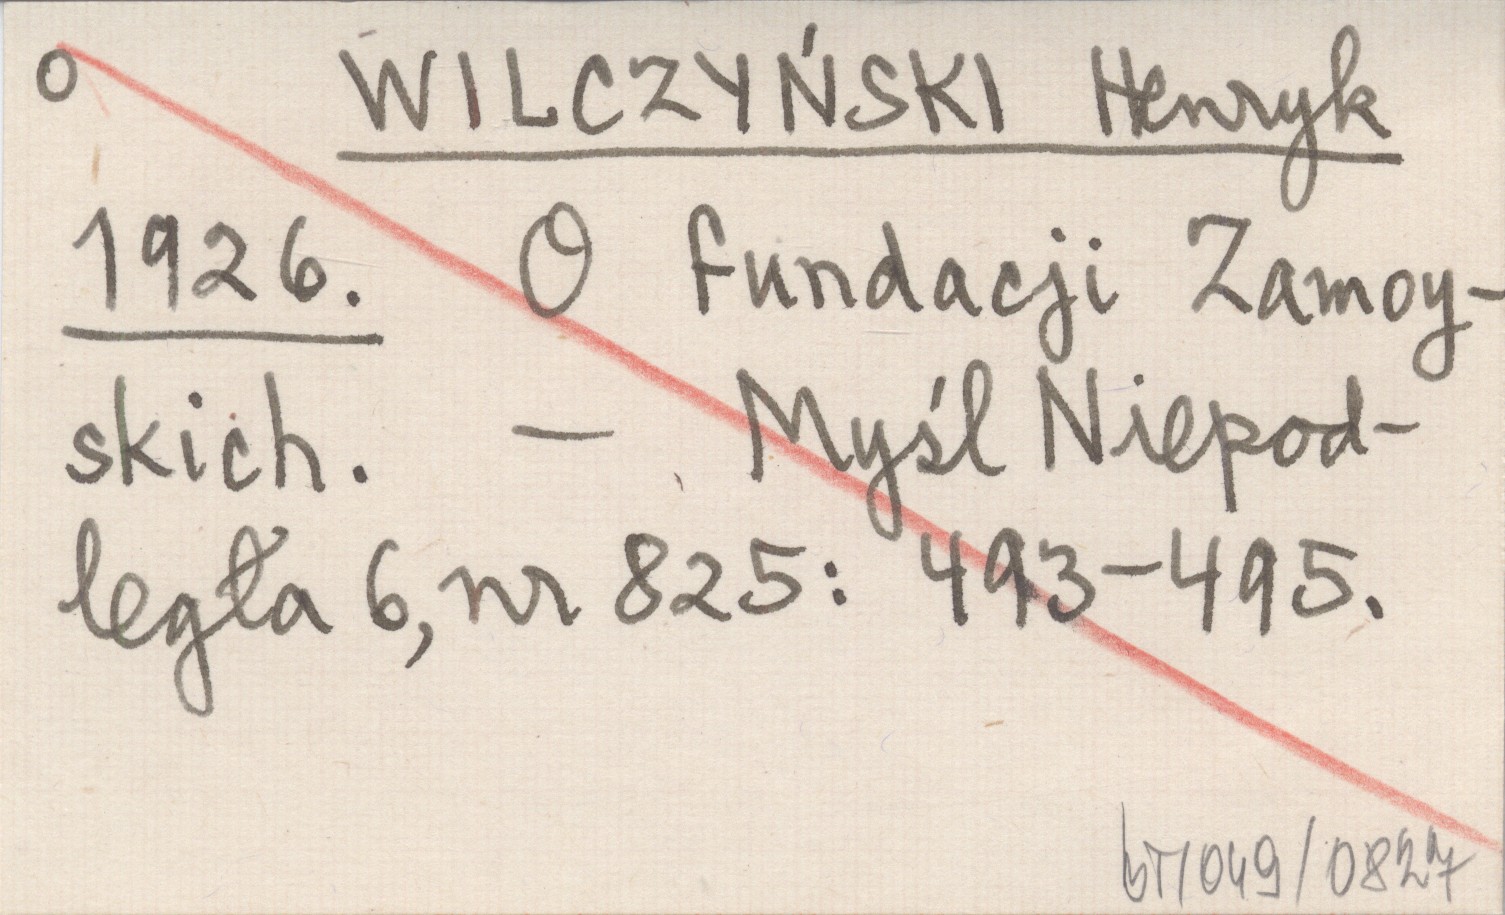 o WILCZYŃSKI Henryk
1926. O Fundacji Zamoy-
skich. — Myśl Niepod-
legła 6, nr 825: 493-495.
bT/049/0827